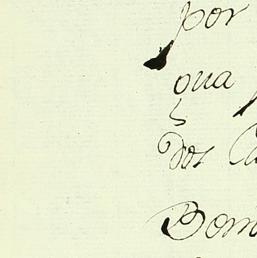 por
qua
dos
Dom